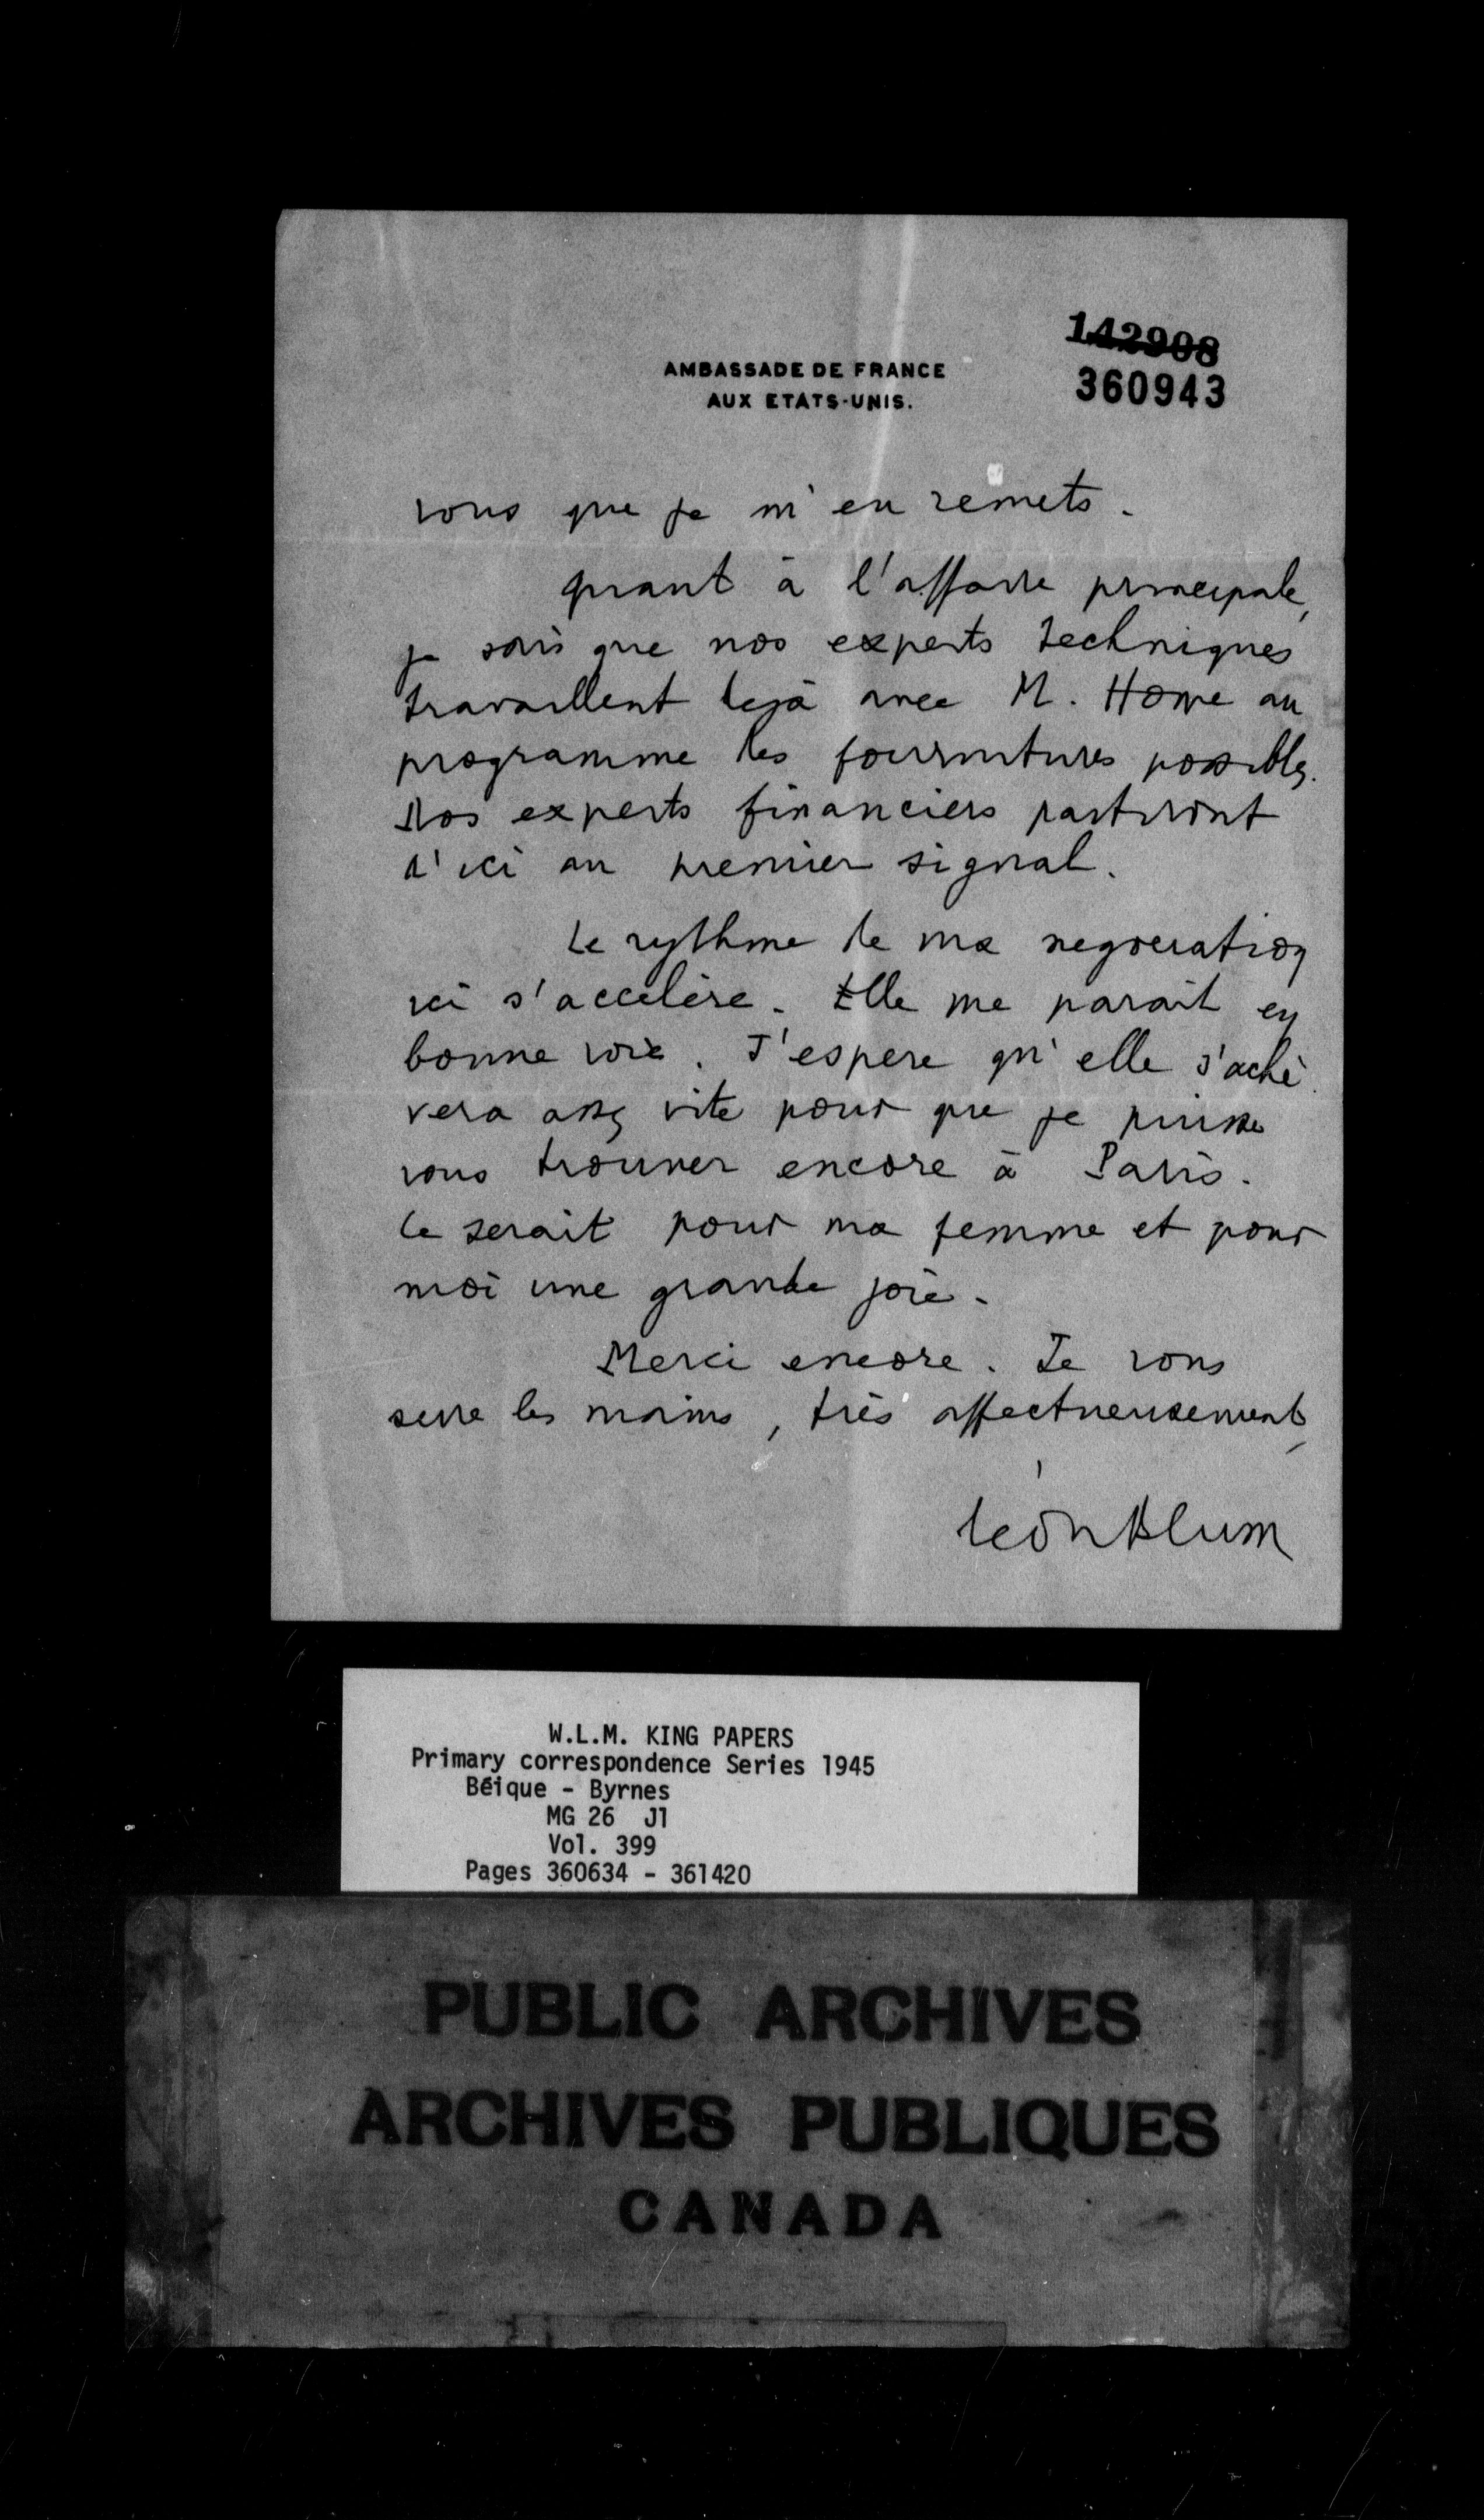 142908
AMBASSADE DE FRANCE
AUX ETATS-UNIS.
360943
vous que je m'en remets.
quant à l'affaire principale,
je sais que nos experts techniques
travaillent dejà avec M. Howe au
programme des fournitures possibles.
Nos experts financiers partiront
d'ici au premier signal.
Le rythme de ma negociation
ici s'accelère. Elle me parait en
bonne voie. J'espere qu'elle s'achè
vera assez vite pour que je puisse
vous trouver encore à Paris.
Ce serait pour ma femme et pour
moi une grande joie.
Merci encore. Je vous
serre les mains, très affectueusement,
Léon Blum
W.L.M. KING PAPERS
Primary correspondence Series 1945
Béique - Byrnes
MG 26 J1
Vol. 399
Pages 360634 - 361420
PUBLIC ARCHIVES
ARCHIVES PUBLIQUES
CANADA